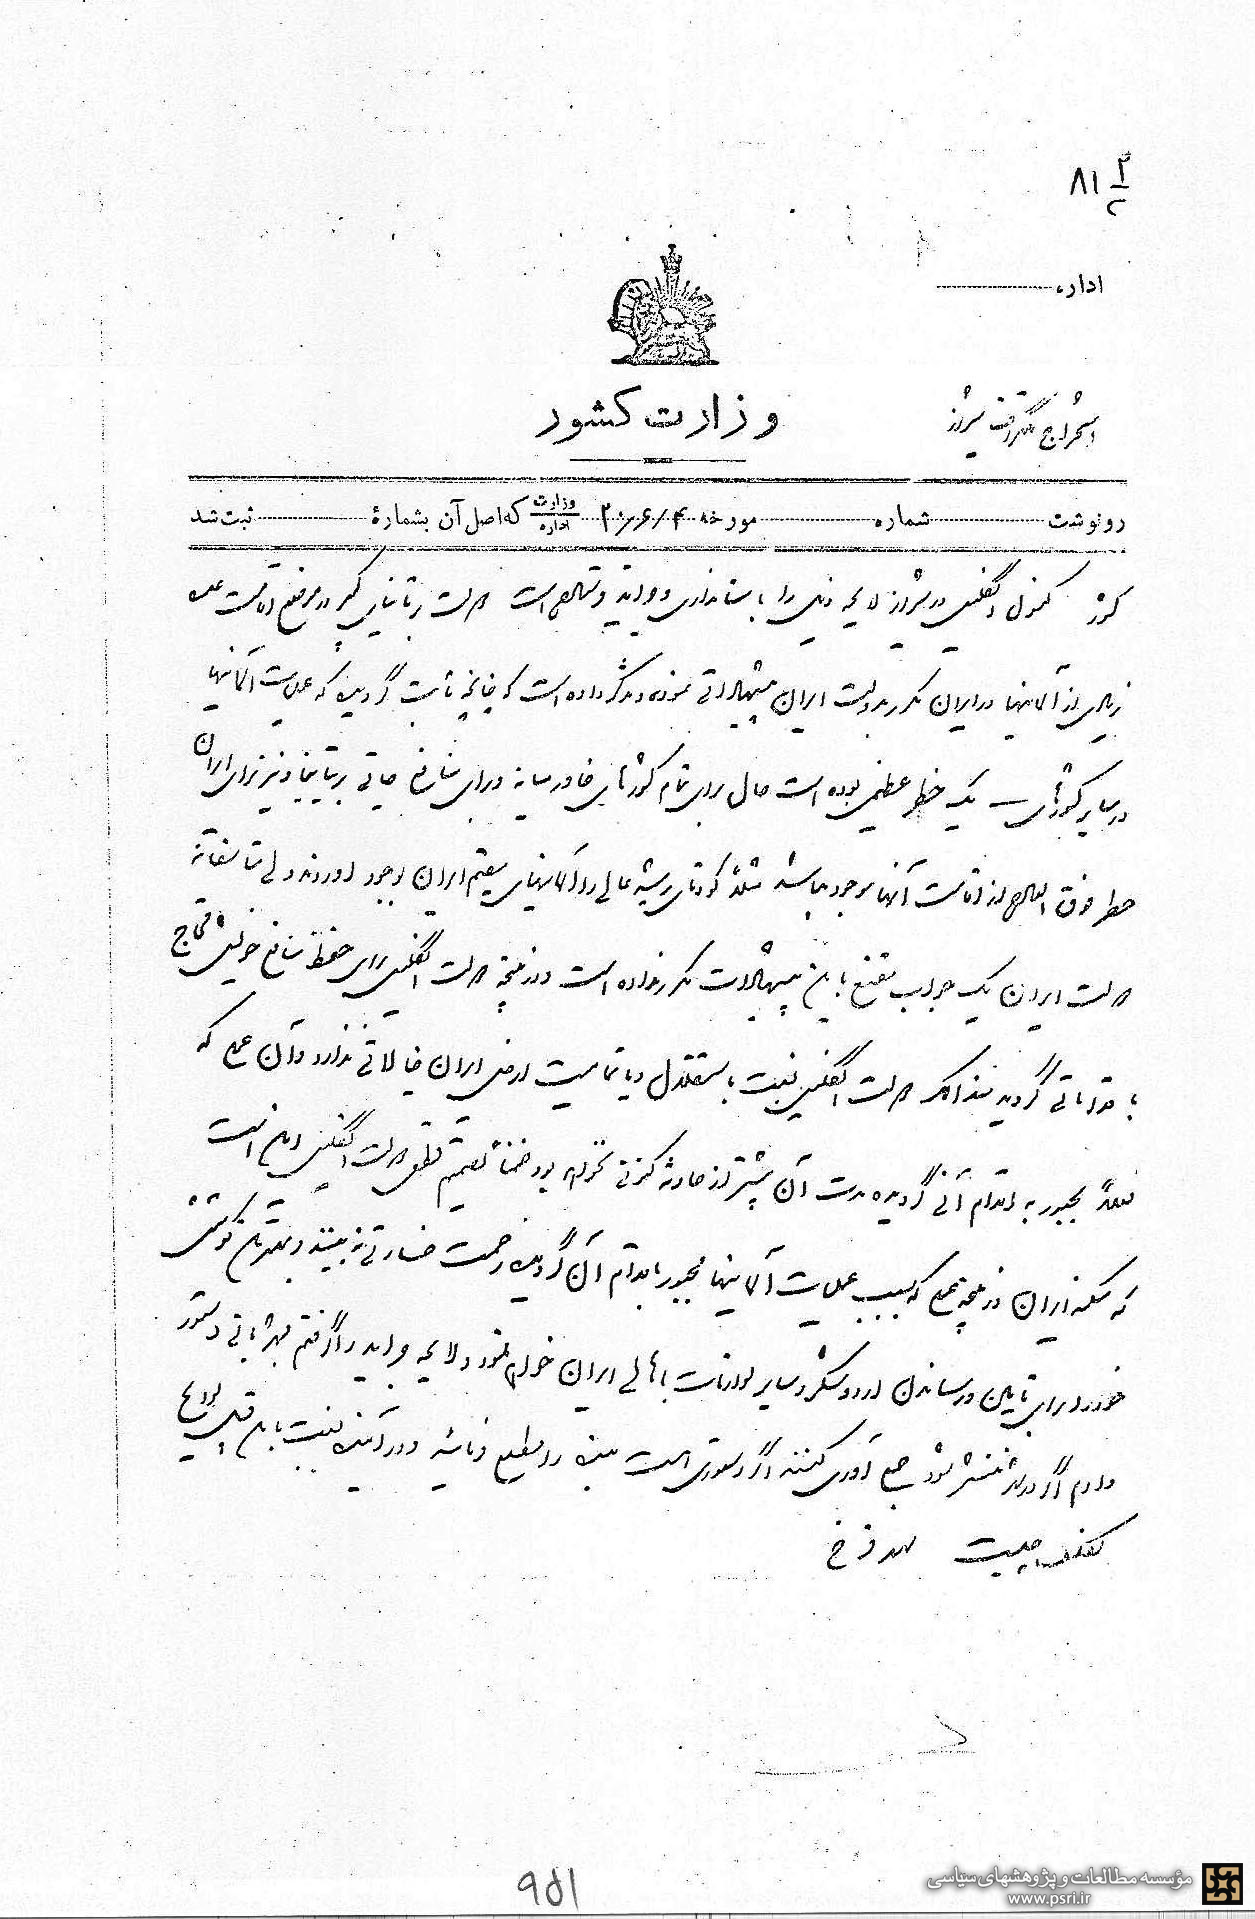 ۲/۲ ۸۱
اداره
وزارت کشور
استخراج تلگراف شیراز
رونوشت شماره مورخه ۲۰/۶/۴ وزارت اداره که اصل آن بشمارهٔ ثبت شد
کشور کنسول انگلیس در شیراز لایحه ذیل را باستانداری و است دولت بریتانیای کبیر در موضع اقامت عده
زیادی از آلمانیها در ایران مکرر بدولت ایران پیشنهاداتی نموده و تذکر داده است که چنانچه ثابت گردیده که عملیات آلمانیها
در سایر کشورهای یک خطر عظیمی بوده است حال برای تمام کشورهای خاورمیانه و برای منافع حیاتی بریتانیا و نیز برای ایران
خطر فوق العاده از اقامت آنها موجود میباشد مثلا کودتای رشید عالی را آلمانیهای مقیم ایران بوجود آوردند ولی متاسفانه
دولت ایران یک جواب مقنع باین پیشنهادات مکرر نداده است و در نتیجه دولت انگلیس برای حفظ منافع خویش محتاج
باقداماتی گردید دولت انگلیس نسبت باستقلال و یا تمامیت ارضی ایران خیالاتی ندارد و آن عمل که
فعلا مجبور به اقدام آنی گردیده مدت آن بیشتر از حادثه کنونی نخواهد بود ضمنا تصمیم قطعی دولت انگلیس این است
که سکنه ایران در نتیجه عملی که بسبب عملیات آلمانیها مجبور باقدام آن گردیده زحمت خسارتی نه بینند و بهترین کوشش
خود را برای تامین و رساندن آذوقه و شکر و سایر لوازمات باهالی ایران خواهد نمود و لایحه و را گرفتم بشهربانی دستور
دادم اگر در شهر منتشر شود جمع آوری کنند اگر دستوری است بنده را مطلع فرمائید و در آتیه نسبت باین قبیل لوایح
تکلیف چیست مهدی فرخ
۹۵۱
مؤسسه مطالعات و پژوهشهای سیاسی
www.psri.ir